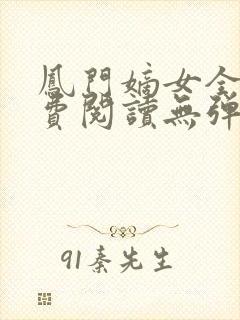 鳳門嫡女全
費閱讀無彈
91秦先生